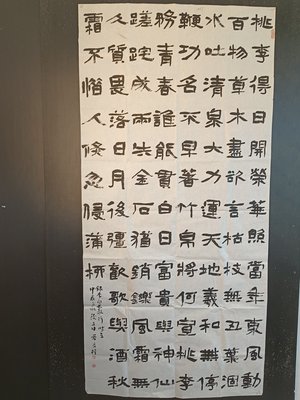 桃李得日開榮華照當年東風動
百物草木盡欲言枯枝無丑葉涸
水吐清泉大力運天地羲和無停
鞭功名不早著竹帛將何宣桃李
務青春誰能貫白日富貴與神仙
蹉跎成兩失金石猶銷鑠風霜無
久質畏落日月後彊歡歌與酒秋
霜不惜人倏忽侵蒲柳